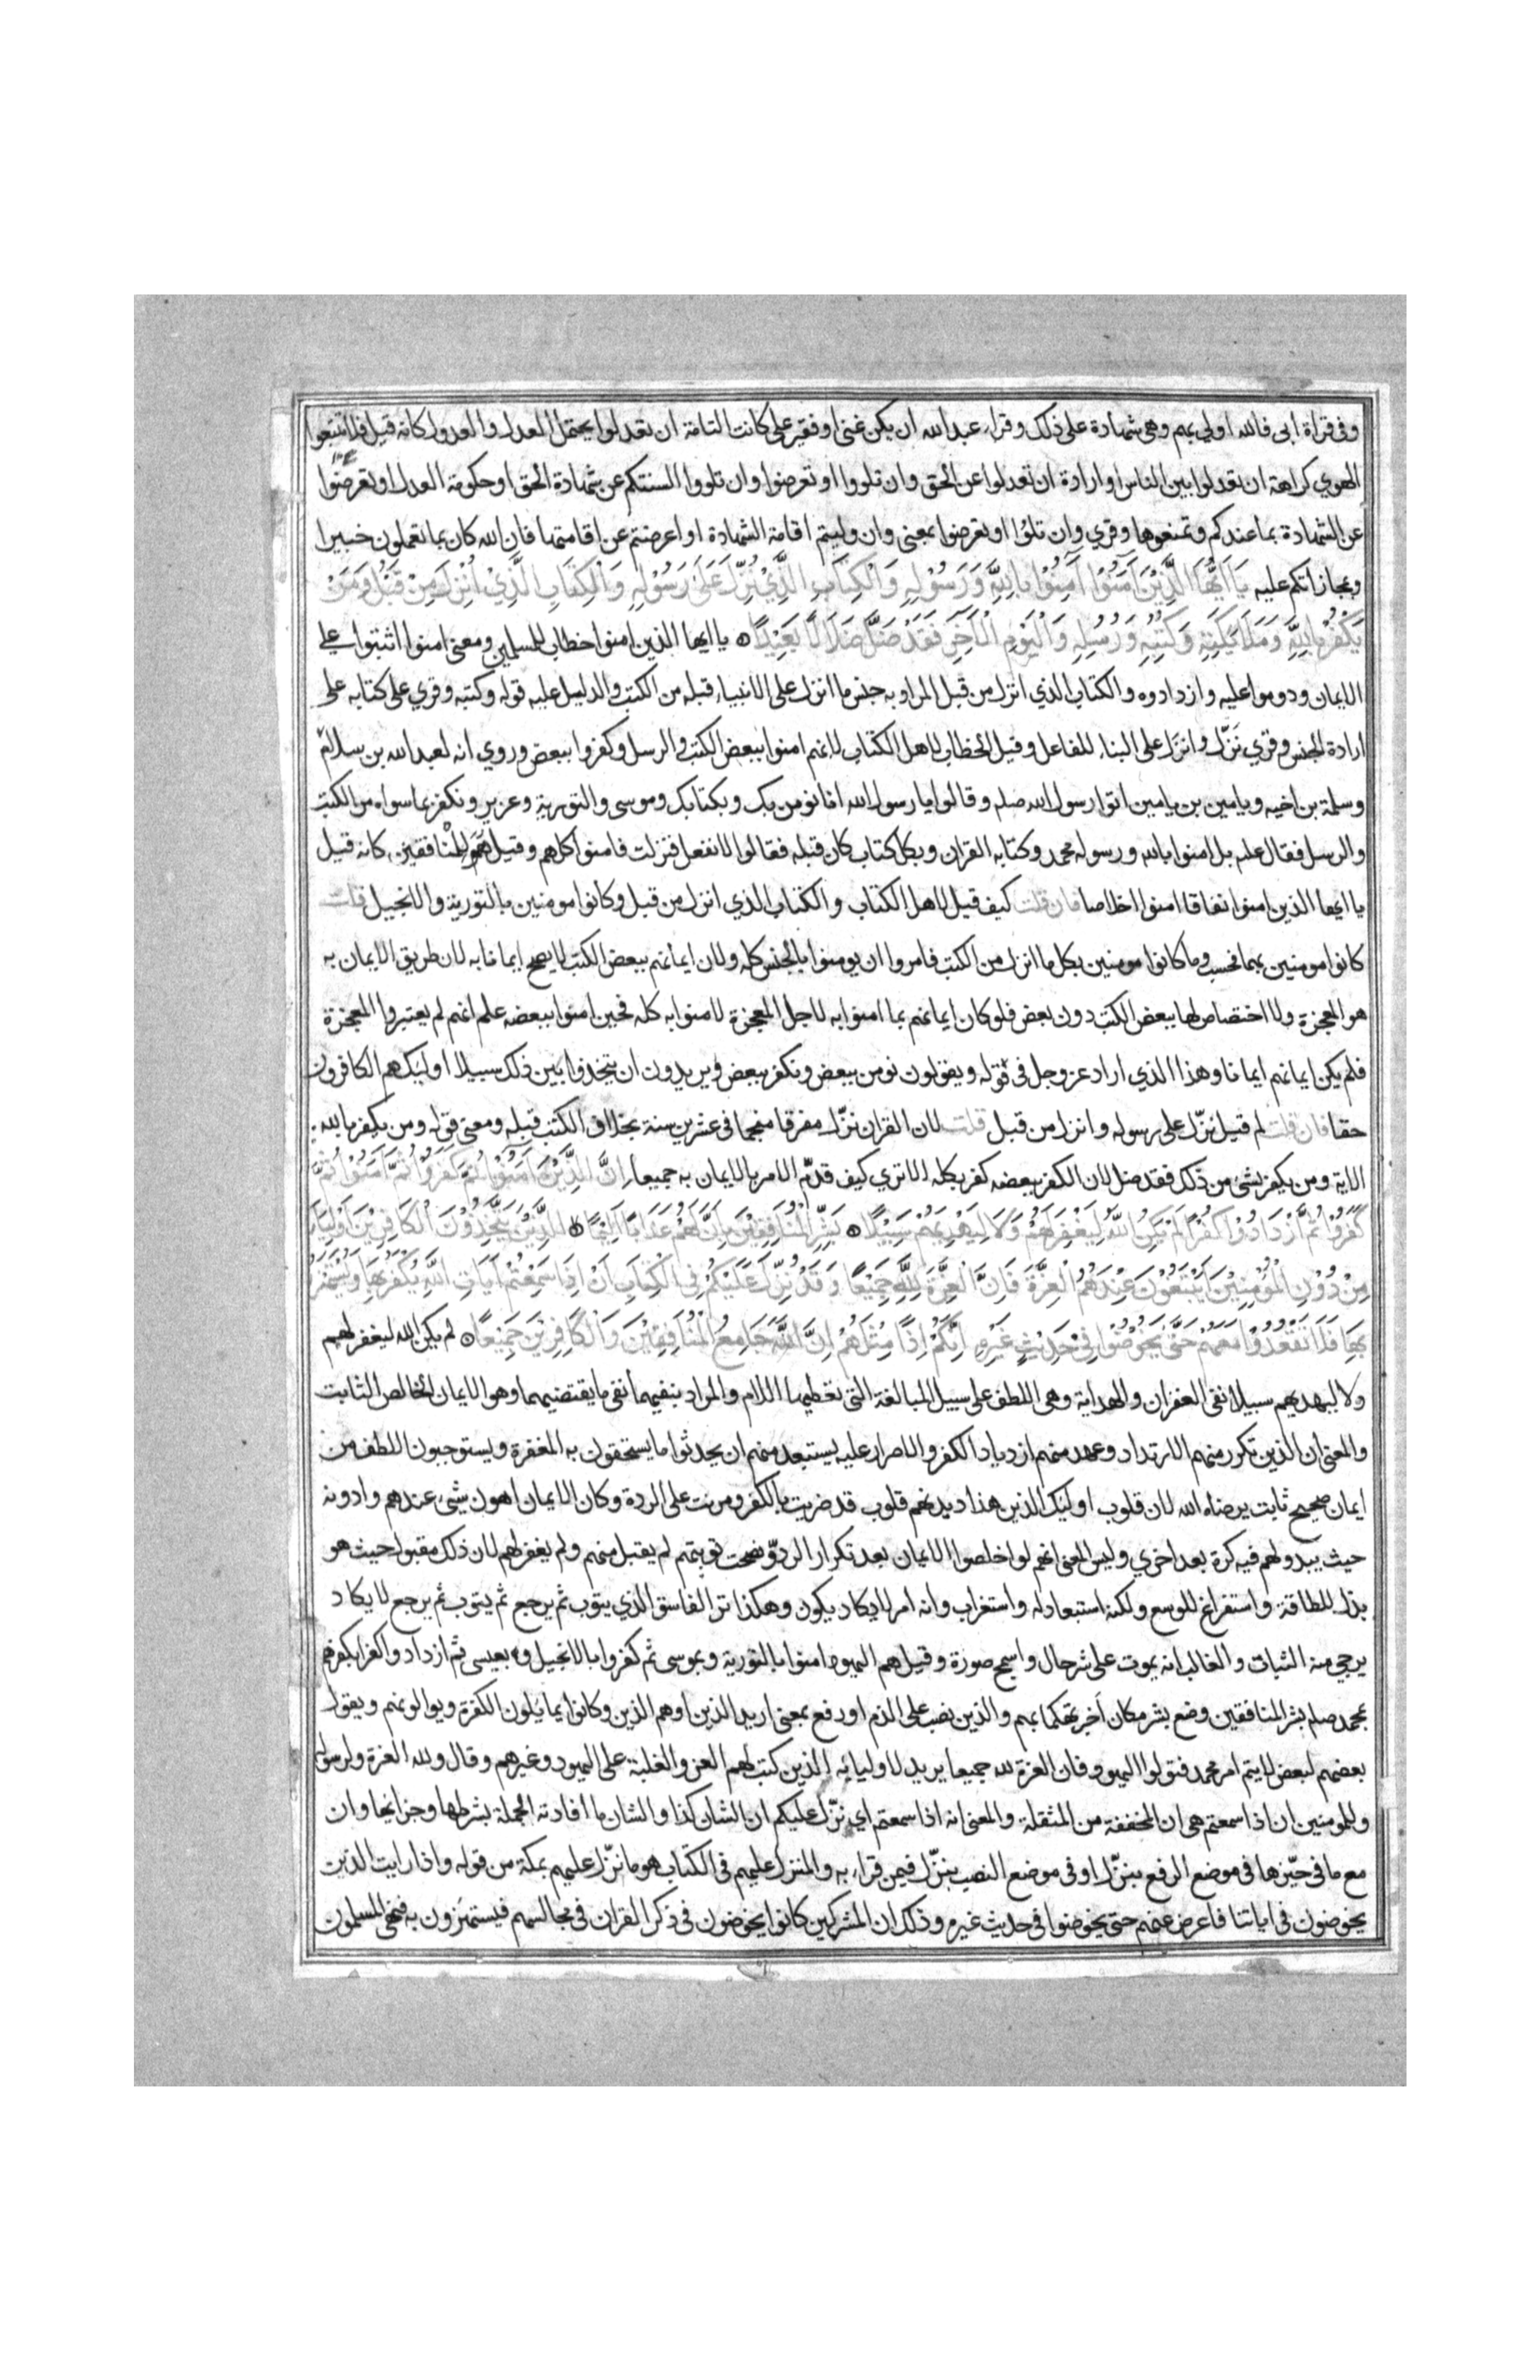 وفى قراة ابى فالله اولي بهم وهى شهادة على ذلك وقراء عبد الله ان يكن غنى او فقير على كانت التامة ان تعدلوا يحتمل العدل والعدول كانه قيل فلا تتبعوا
الهوي كراهة ان تعدلوا بين الناس او ارادة ان تعدلوا عن الحق وان تلووا او تعرضوا وان تلووا السنتكم عن شهادة الحق او حكومة العدل او تعرضوا
عن الشهادة بما عندكم وتمنعوها وقري وان تلوا او تعرضوا بمعنى وان وليتم اقامة الشهادة او اعرضتم عن اقامتها فان الله كان بما تعملون خبيرا
وبمجازاتكم عليه يَا اَيُّهَا الَّذِيْنَ آمَنُوْا آمِنُوْا بِاللّٰهِ وَرَسُوْلِهِ وَالْكِتَابِ الَّذِيْ نَزَّلَ عَلَى رَسُوْلِهِ وَالْكِتَابِ الَّذِيْ اُنْزِلَ مِنْ قَبْلُ وَمَنْ
يَكْفُرْ بِاللّٰهِ وَمَلَائِكَتِهِ وَكُتُبِهِ وَرُسُلِهِ وَالْيَوْمِ الْآخِرِ فَقَدْ ضَلَّ ضَلَالًا بَعِيْدًا يا ايها الذين امنوا خطاب للمسلمين ومعنى امنوا اثبتوا على
الايمان ودوموا عليه وازدادوه والكتاب الذي انزل من قبل المراد به جنس ما انزل على الانبياء قبله من الكتب والدليل عليه قوله وكتبه وقري على كتابه على
ارادة الجنس وقري نَزّل وانزَل على البناء للفاعل وقيل الخطاب لاهل الكتاب لانهم امنوا ببعض الكتب والرسل وكفروا ببعض وروي انه لعبد الله بن سلام
وسلمة بن اخيه ويامين بن يامين اتوا رسول الله صلم وقالوا يا رسول الله انا نومن بك وبكتابك وموسى والتورية وعزير ونكفر بما سواه من الكتب
والرسل فقال علم بل امنوا بالله ورسوله محمد وكتابه القران وبكل كتاب كان قبله فقالوا لا نفعل فنزلت فامنوا كلهم وقيل هو للمنافقين كانه قيل
يا ايها الذين امنوا نفاقا امنوا اخلاصا فان قلت كيف قيل لاهل الكتاب والكتاب الذي انزل من قبل وكانوا مومنين بالتورية والانجيل قلت
كانوا مومنين بهما فحسب وما كانوا مومنين بكل ما انزل من الكتب فامروا ان يومنوا بالجنس كله ولان ايمانهم ببعض الكتب لا يصح ايمانا به لان طريق الايمان به
هو المعجزة ولا اختصاص لها ببعض الكتب دون بعض فلو كان ايمانهم بما امنوا به لاجل المعجزة لامنوا به كله فحين امنوا ببعضه علم انهم لم يعتبروا المعجزة
فلم يكن ايمانهم ايمانا وهذا الذي اراد عز وجل فى قوله ويقولون نومن ببعض ونكفر ببعض ويريدون ان يتخذوا بين ذلك سبيلا اوليك هم الكافرون
حقا فان قلت لم قيل نزّل على رسوله وانزل من قبل قلت لان القران نزّل مفرقا منجما فى عشرين سنة بخلاف الكتب قبله ومعنى قوله ومن يكفر بالله
الاية ومن يكفر بشئ من ذلك فقد ضل لان الكفر ببعضه كفر بكله الا تري كيف قدّم الامر بالايمان به جميعا اِنَّ الَّذِيْنَ آمَنُوْا ثُمَّ كَفَرُوْا ثُمَّ آمَنُوْا ثُمَّ
كَفَرُوْا ثُمَّ ازْدَادُوْا كُفْرًا لَمْ يَكُنِ اللّٰهُ لِيَغْفِرَ لَهُمْ وَلَا لِيَهْدِيَهُمْ سَبِيْلًا بَشِّرِ الْمُنَافِقِيْنَ بِاَنَّ لَهُمْ عَذَابًا اَلِيْمًا الَّذِيْنَ يَتَّخِذُوْنَ الْكَافِرِيْنَ اَوْلِيَاءَ
مِنْ دُوْنِ الْمُؤْمِنِيْنَ اَيَبْتَغُوْنَ عِنْدَهُمُ الْعِزَّةَ فَاِنَّ الْعِزَّةَ لِلّٰهِ جَمِيْعًا وَقَدْ نَزَّلَ عَلَيْكُمْ فِى الْكِتَابِ اَنْ اِذَا سَمِعْتُمْ آيَاتِ اللّٰهِ يُكْفَرُ بِهَا وَيُسْتَهْزَأُ
بِهَا فَلَا تَقْعُدُوْا مَعَهُمْ حَتَّى يَخُوْضُوْا فِىْ حَدِيْثٍ غَيْرِهِ اِنَّكُمْ اِذًا مِثْلُهُمْ اِنَّ اللّٰهَ جَامِعُ الْمُنَافِقِيْنَ وَالْكَافِرِيْنَ جَمِيْعًا لم يكن الله ليغفر لهم
ولا ليهديهم سبيلا نفى الغفران والهداية وهى اللطف على سبيل المبالغة التى تعطيها اللام والمراد بنفيهما نفى ما يقتضيهما وهو الايمان الخالص الثابت
والمعنى ان الذين تكرر منهم الارتداد وعهد منهم ازدياد الكفر والاصرار عليه يستبعد منهم ان يحدثوا ما يستحقون به المغفرة ويستوجبون اللطف من
ايمان صحيح ثابت يرضاه الله لان قلوب اوليك الذين هذا ديدنهم قلوب قد ضريت بالكفر ومرنت على الردة وكان الايمان اهون شئ عندهم وادونه
حيث يبدو لهم فيه كرة بعد اخري وليس المعنى انهم لو اخلصوا الايمان بعد تكرار الردّة ونصحت توبتهم لم يقبل منهم ولم يغفر لهم لان ذلك مقبول حيث هو
بذل للطاقة واستفراغ للوسع ولكنه استبعاد له واستغراب وانه امر لا يكاد يكون وهكذا ترا الفاسق الذي يتوب ثم يرجع ثم يتوب ثم يرجع لا يكاد
يرجي منه الثبات والغالب انه يموت على شر حال واسمج صورة وقيل هم اليهود امنوا بالتورية وبموسى ثم كفروا بالانجيل وبعيسى ثم ازدادوا كفرا بكفرهم
بمحمد صلم بشر المنافقين وضع بشر مكان أخبر تهكما بهم والذين نصب على الذم او رفع بمعنى اريد الذين او هم الذين وكانوا يمايلون الكفرة ويوالونهم ويقول
بعضهم لبعض لا يتم امر محمد فتولوا اليهود فان العزة لله جميعا يريد لاوليائه الذين كتب لهم العز والغلبة على اليهود وغيرهم وقال ولله العزة ولرسوله
وللمومنين ان اذا سمعتم هى ان المخففة من المثقلة والمعنى انه اذا سمعتم اي نزّل عليكم ان الشان كذا والشان ما افادته الجملة بشرطها وجزائها وان
مع ما فى حيّزها فى موضع الرفع بنزّل او فى موضع النصب بنزّل فيمن قراء به والمنزل عليهم فى الكتاب هو ما نزّل عليهم بمكة من قوله واذا رايت الذين
يخوضون فى اياتنا فاعرض عنهم حتى يخوضوا فى حديث غيره وذلك ان المشركين كانوا يخوضون فى ذكر القران فى مجالسهم فيستهزون به فنهى المسلمون